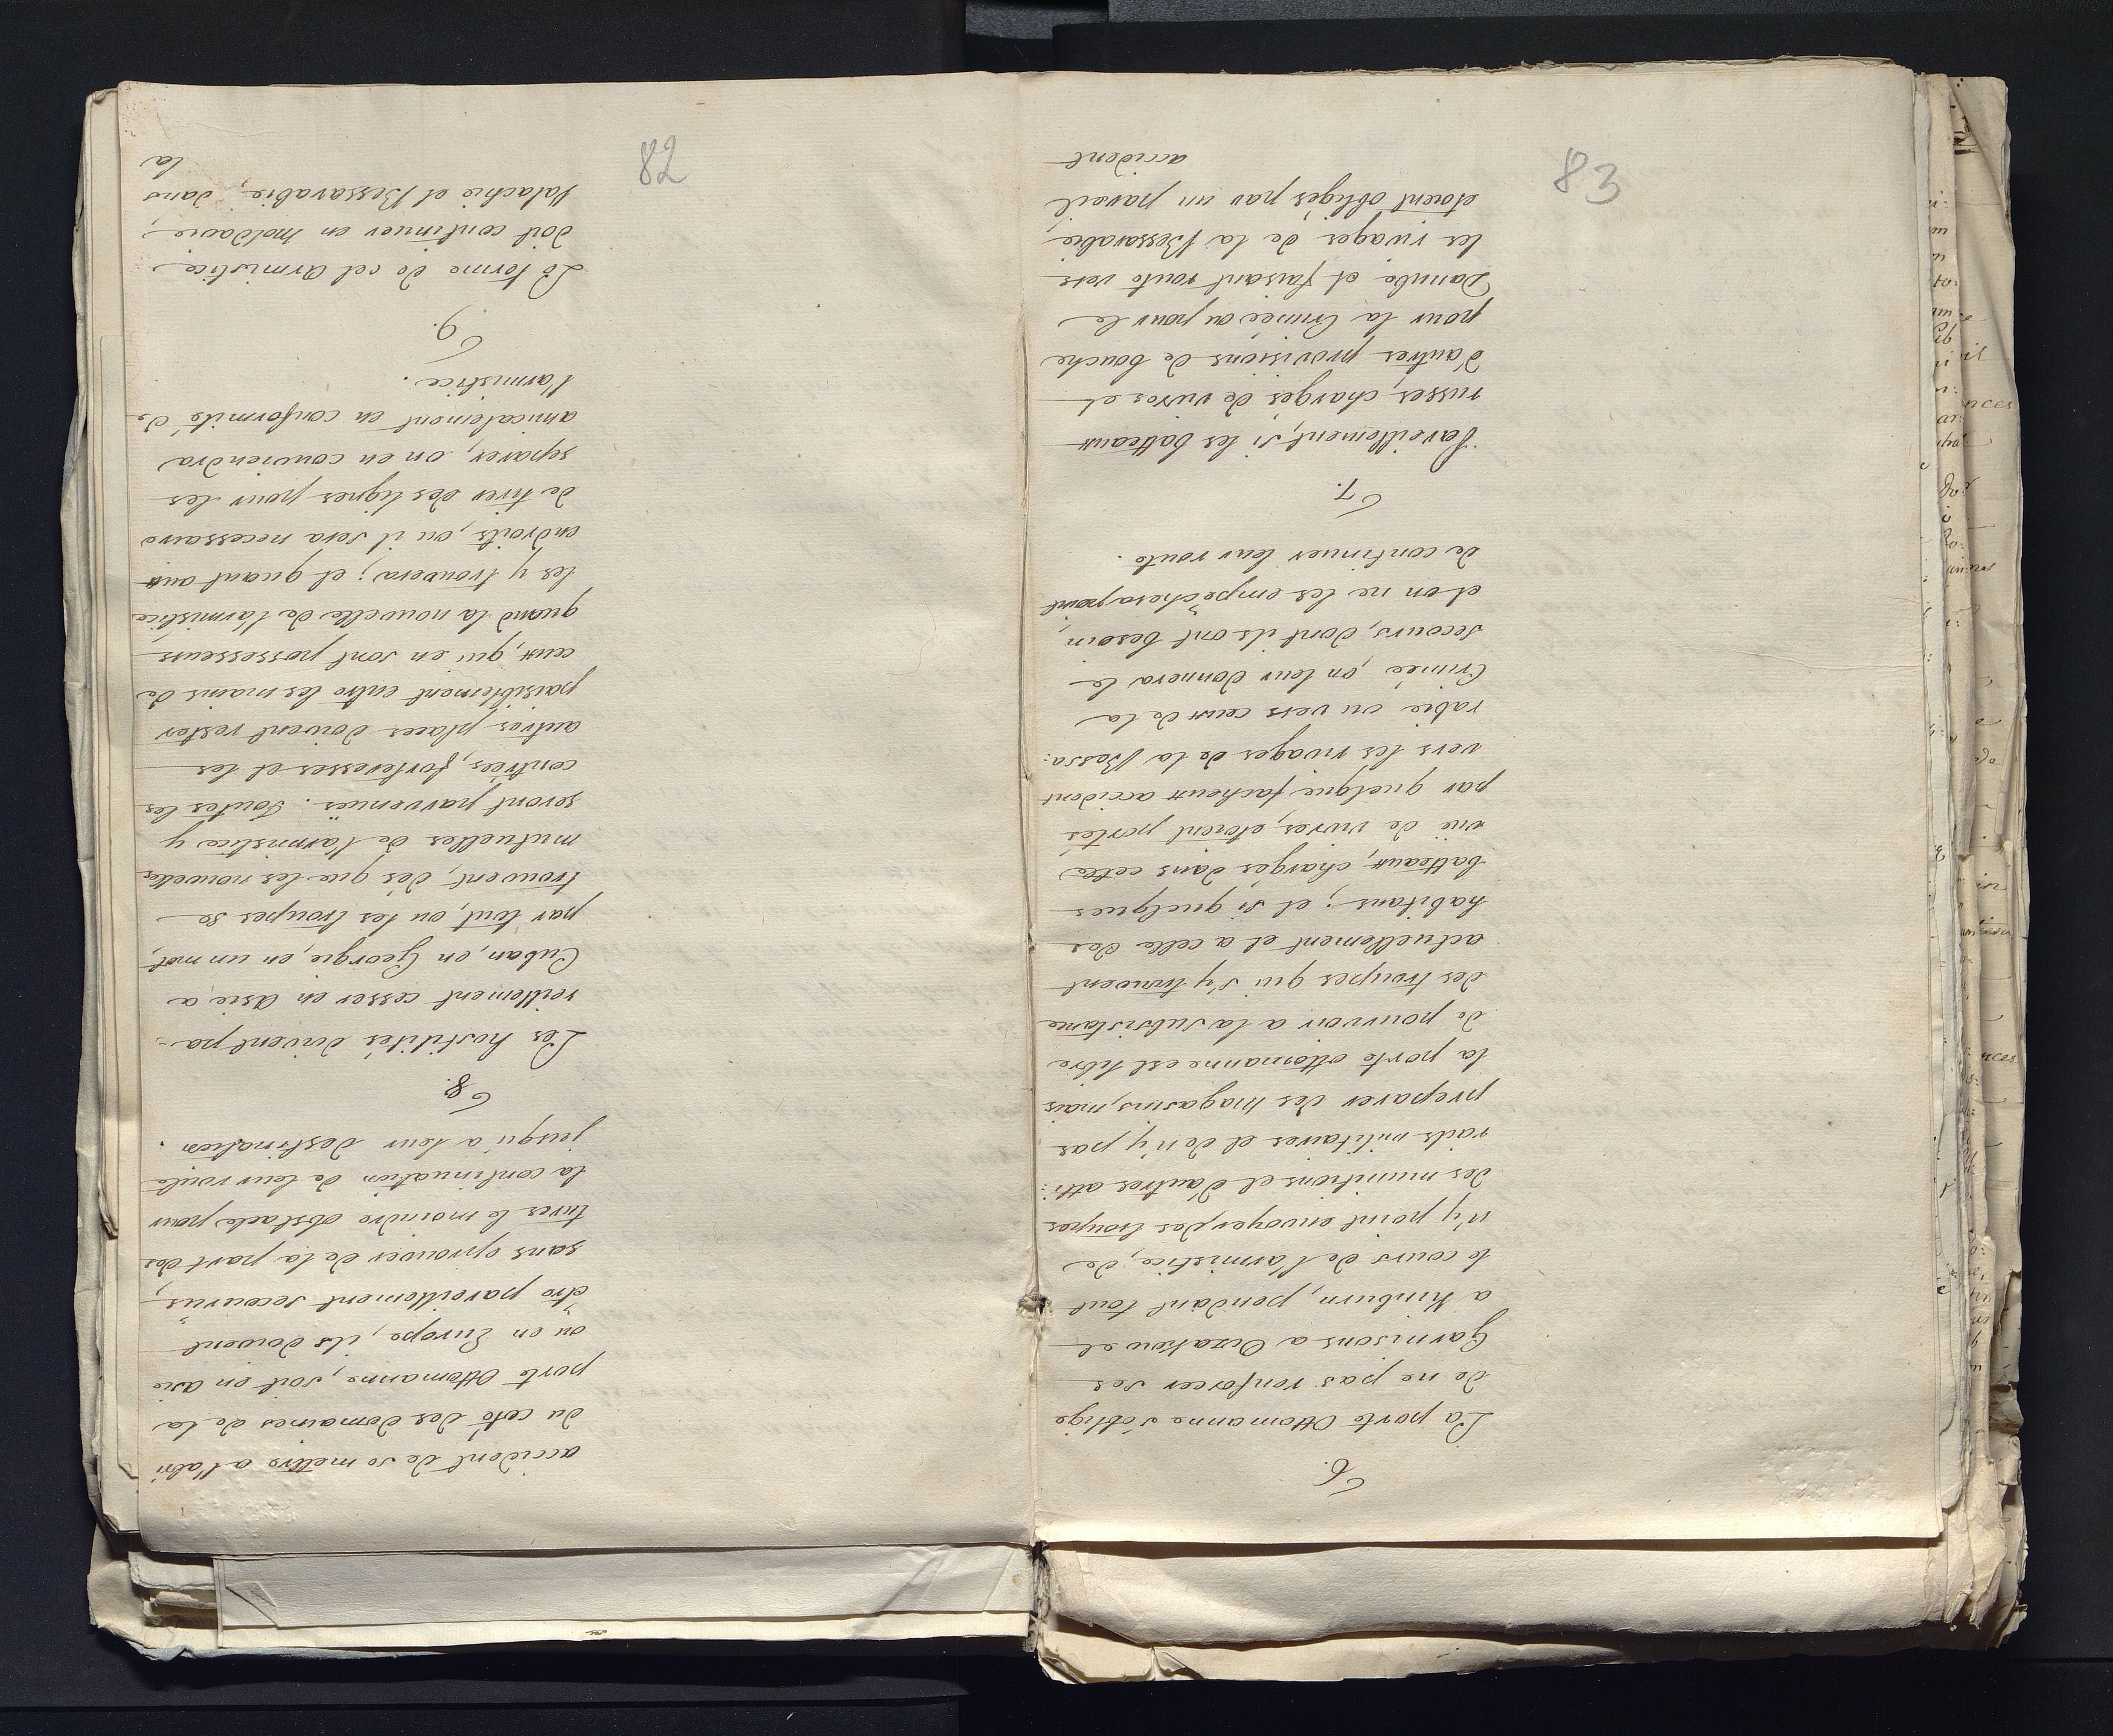 83
§ 6.
La porte Ottomanne s'oblige
de ne pas renforcer ses
Garnisons a Oczakow et
a Kinburn, pendant tout
le cours de l'armistice, de
n'y point envoyer, des troupes
des munitions et d'autres atti-
rails militaires et de n'y pas
preparer des magasins, mais
la porte ottomanne est libre
de pourvoir a la subsistance
des troupes qui s'y trouvent
actuellement et a celle des
habitans; et si quelques
batteaux, chargés dans cette
vüe de vivres, etoient portés
par quelque facheux accident
vers les rivages de la Bessa-
rabie ou vers ceux de la
Crimée, on leur donnera le
secours, dont ils ont besoin,
et on ne les empêchera point
de continuer leur route.
§ 7.
Pareillement, si les batteaux
russes, chargés de vivres et
d'autres provisions de bouche
pour la Crimée ou pour le
Danube et faisant route vers
les rivages de la Bessarabie
etoient obligés par un pareil
accident
82
accident de se mettre a l'abri
du coté des Domaines de la
porte Ottomanne, soit en asie
ou en Europe, ils doivent
être pareillement secourus,
sans eprouver de la part des
turcs le moindre obstacle pour
la continuation de leur route
jusqu'a leur destination.
§ 8.
Les hostilités doivent pa-
reillement cesser en Asie, a
Cuban, en Georgie, en un mot,
par tout, ou les troupes se
trouvent, dès que les nouvelles
mutuelles de l'armistice y
seront parvenües. Toutes les
contrées, forteresses et les
autres places doivent rester
paisiblement entre les mains de
ceux, qui en sont possesseurs
quand la nouvelle de l'armistice
les y trouvera; et quant aux
endroits, ou il sera necessaire
de tirer des lignes pour les
separer, on en conviendra
amicalement en conformité de
l'armistice.
§ 9.
Le terme de cet Armistice
doit continuer en Moldavie,
Valachie et Bessarabie, dans
la